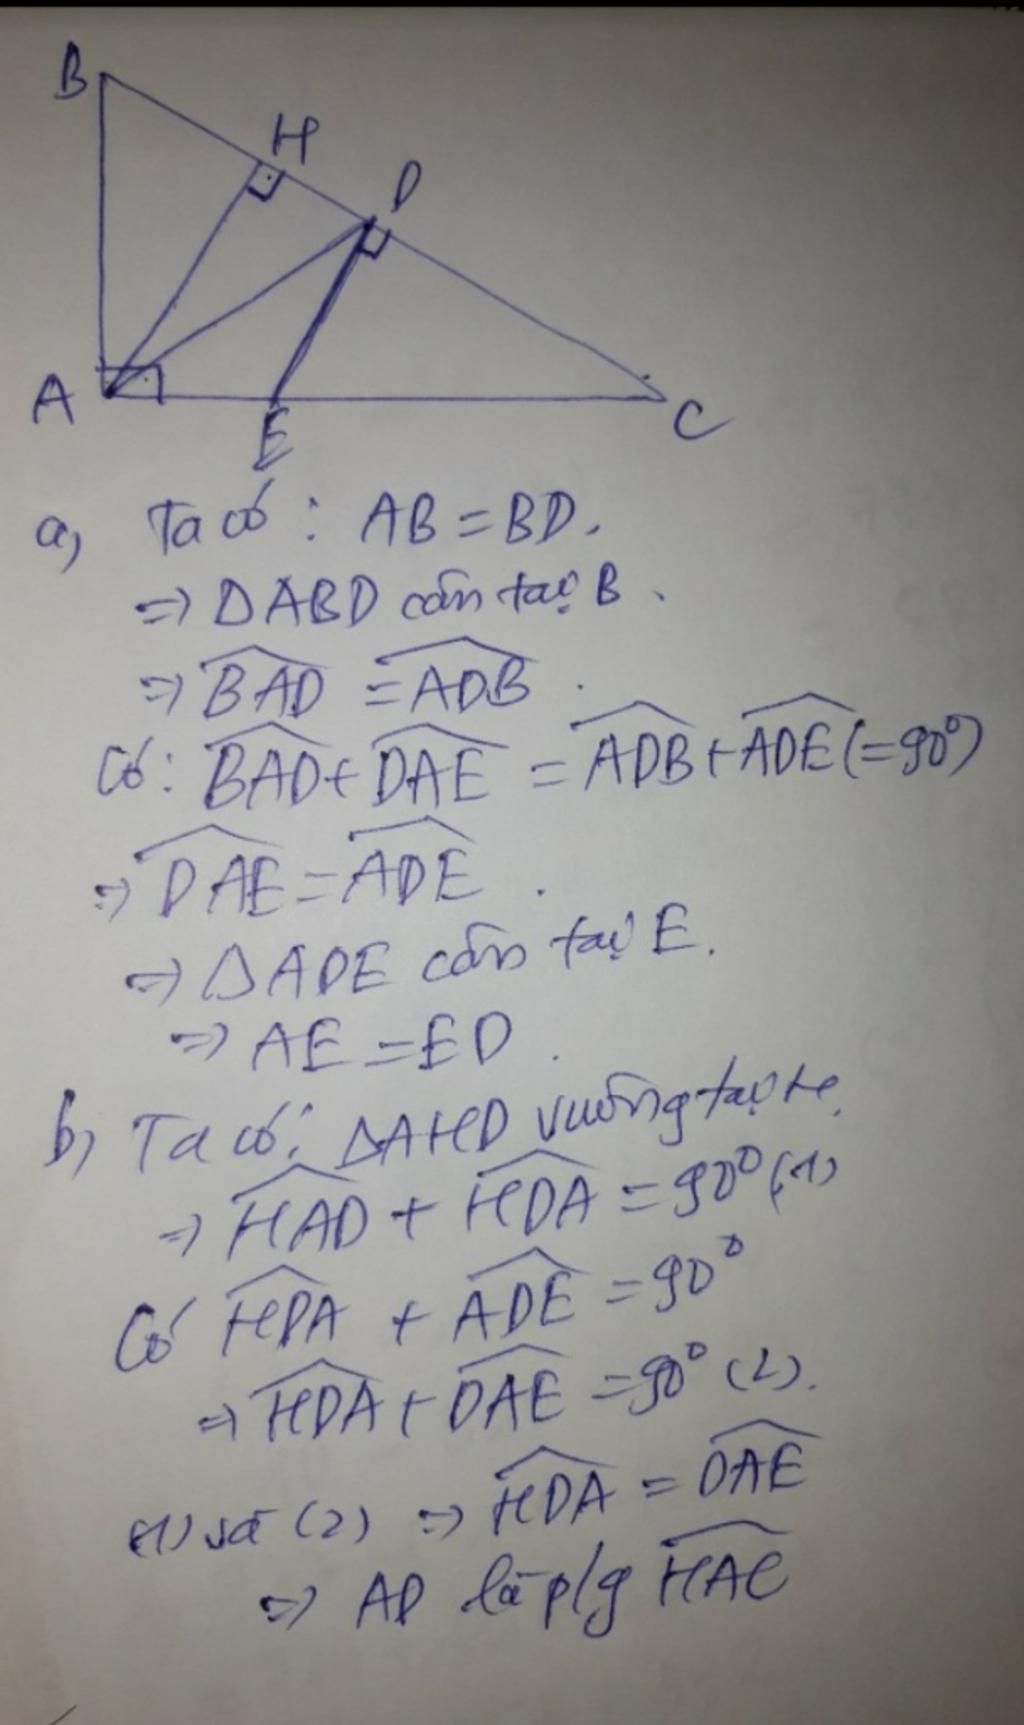 B
H
D
A
E
C
a, Ta có : AB = BD.
=> ΔABD cân tại B.
=> \widehat{BAD} = \widehat{ADB}.
Có: \widehat{BAD} + \widehat{DAE} = \widehat{ADB} + \widehat{ADE} (=90°)
=> \widehat{DAE} = \widehat{ADE}.
=> ΔADE cân tại E.
=> AE = ED.
b, Ta có: ΔAHD vuông tại H.
=> \widehat{HAD} + \widehat{HDA} = 90° (1)
Có \widehat{HDA} + \widehat{ADE} = 90°
=> \widehat{HDA} + \widehat{DAE} = 90° (2).
(1) và (2) => \widehat{HDA} = \widehat{DAE}
=> AD là p/g \widehat{HAC}